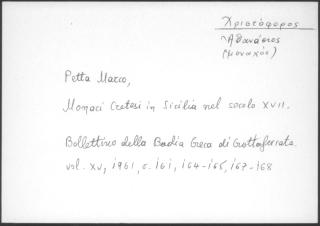 Χριστόφορος
Ἀθανάσιος
(μοναχός)
Petta Marco,
Monaci Cretesi in Sicilia nel secolo XVII.
Bollettino della Badia Greca di Grottaferrata.
vol. XV, 1961, σ. 161, 164-165, 167-168